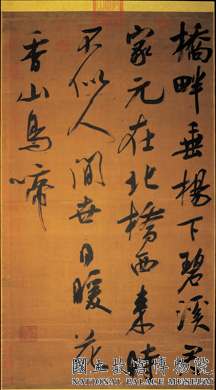 橋畔垂楊下碧溪君
家元在北橋西來時
不似人間世日暖花
香山鳥啼
國立故宮博物院
NATIONAL PALACE MUSEUM